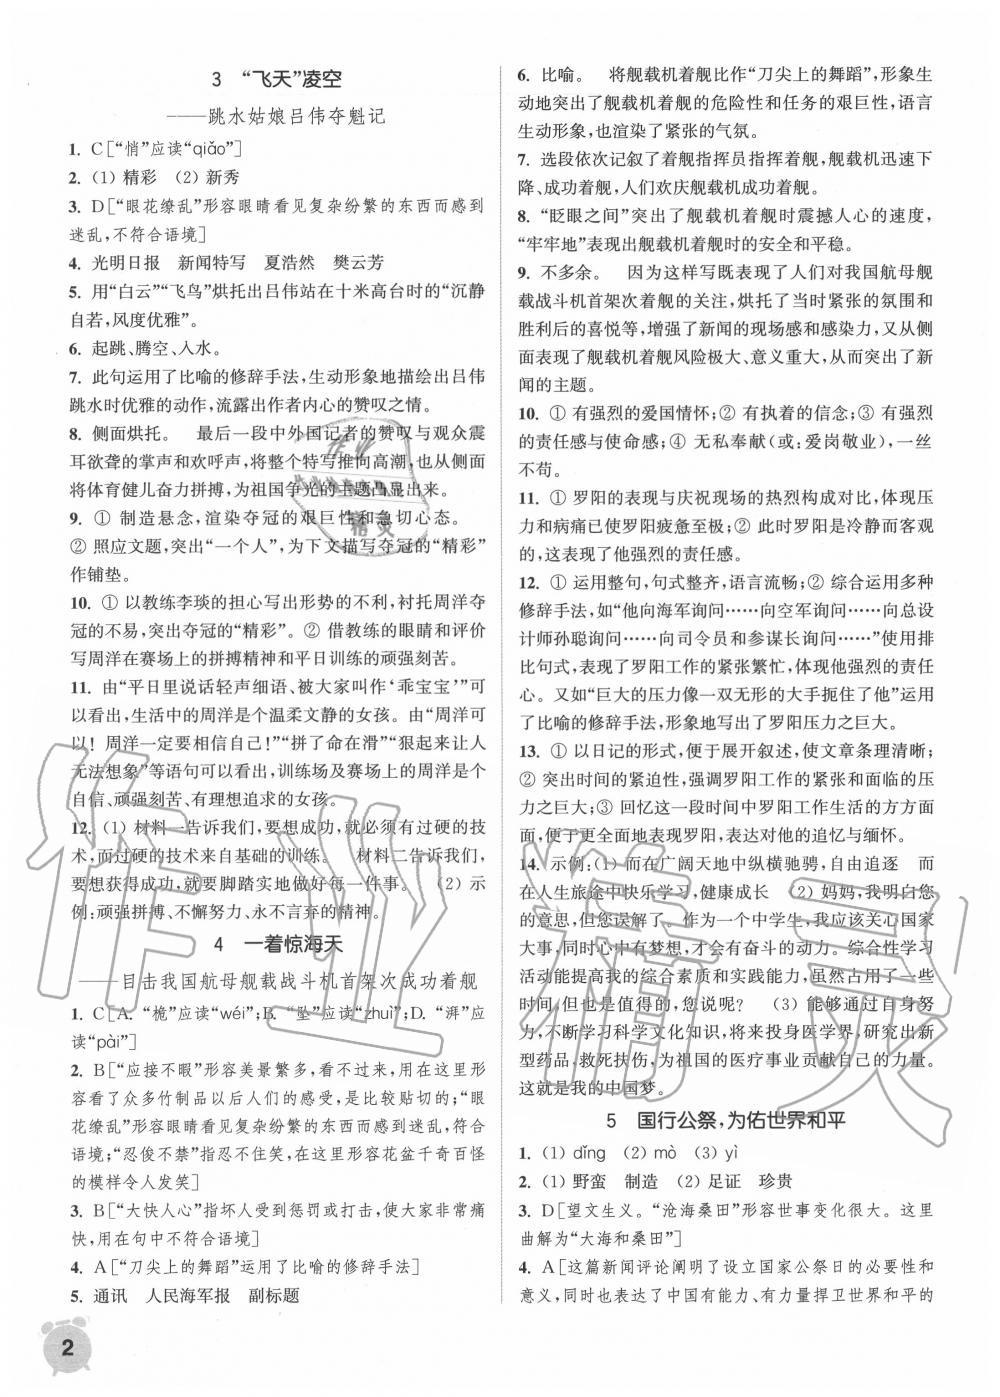 3　“飞天”凌空
——跳水姑娘吕伟夺魁记
1. C[“悄”应读“qiǎo”]
2. (1) 精彩　(2) 新秀
3. D[“眼花缭乱”形容眼睛看见复杂纷繁的东西而感到
迷乱,不符合语境]
4. 光明日报　新闻特写　夏浩然　樊云芳
5. 用“白云”“飞鸟”烘托出吕伟站在十米高台时的“沉静
自若,风度优雅”。
6. 起跳、腾空、入水。
7. 此句运用了比喻的修辞手法,生动形象地描绘出吕伟
跳水时优雅的动作,流露出作者内心的赞叹之情。
8. 侧面烘托。　最后一段中外国记者的赞叹与观众震
耳欲聋的掌声和欢呼声,将整个特写推向高潮,也从侧面
将体育健儿奋力拼搏,为祖国争光的主题凸显出来。
9. ① 制造悬念,渲染夺冠的艰巨性和急切心态。
② 照应文题,突出“一个人”,为下文描写夺冠的“精彩”
作铺垫。
10. ① 以教练李琰的担心写出形势的不利,衬托周洋夺
冠的不易,突出夺冠的“精彩”。② 借教练的眼睛和评价
写周洋在赛场上的拼搏精神和平日训练的顽强刻苦。
11. 由“平日里说话轻声细语、被大家叫作‘乖宝宝’”可
以看出,生活中的周洋是个温柔文静的女孩。由“周洋可
以！周洋一定要相信自己！”“拼了命在滑”“狠起来让人
无法想象”等语句可以看出,训练场及赛场上的周洋是个
自信、顽强刻苦、有理想追求的女孩。
12. (1) 材料一告诉我们,要想成功,就必须有过硬的技
术,而过硬的技术来自基础的训练。　材料二告诉我们,
要想获得成功,就要脚踏实地做好每一件事。　(2) 示
例:顽强拼搏、不懈努力、永不言弃的精神。
4　一着惊海天
——目击我国航母舰载战斗机首架次成功着舰
1. C[A. “桅”应读“wéi”;B. “坠”应读“zhuì”;D. “湃”应
读“pài”]
2. B[“应接不暇”形容美景繁多,看不过来,在这里形容
看了众多竹制品以后人们的感受,是比较贴切的;“惊心
动魄”形容使人感受很深、震动很大,用在这里,不符合
语境;“忍俊不禁”指忍不住笑,在此形容花盆千奇百怪
的模样令人发笑]
3. B[“大快人心”指坏人受到惩罚或打击,使大家非常痛
快,用在句中不符合语境]
4. A[“刀尖上的舞蹈”运用了比喻的修辞手法]
5. 通讯　人民海军报　副标题
6. 比喻。　将舰载机着舰比作“刀尖上的舞蹈”,形象生
动地突出了舰载机着舰的危险性和任务的艰巨性,语言
生动形象,也渲染了紧张的气氛。
7. 选段依次记叙了着舰指挥员指挥着舰,舰载机迅速下
降、成功着舰,人们欢庆舰载机成功着舰。
8. “眨眼之间”突出了舰载机着舰时震撼人心的速度,
“牢牢地”表现出舰载机着舰时的安全和平稳。
9. 不多余。　因为这样写既表现了人们对我国航母舰
载战斗机首架次着舰的关注,烘托了当时紧张的氛围和
胜利后的喜悦等,增强了新闻的现场感和感染力,又从侧
面表现了舰载机着舰风险极大、意义重大,从而突出了新
闻的主题。
10. ① 有强烈的爱国情怀;② 有执着的信念;③ 有强烈
的责任感与使命感;④ 无私奉献(或:爱岗敬业),一丝
不苟。
11. ① 罗阳的表现与庆祝现场的热烈构成对比,体现压
力和病痛已使罗阳疲惫至极;② 此时罗阳是冷静而客观
的,这表现了他强烈的责任感。
12. ① 运用整句,句式整齐,语言流畅;② 综合运用多种
修辞手法,如“他向海军询问……向空军询问……向总设
计师孙聪询问……向司令员和参谋长询问……”使用排
比句式,表现了罗阳工作的紧张繁忙,体现他强烈的责任
心。又如“巨大的压力像一双无形的大手扼住了他”运用
了比喻的修辞手法,形象地写出了罗阳压力之巨大。
13. ① 以日记的形式,便于展开叙述,使文章条理清晰;
② 突出时间的紧迫性,强调罗阳工作的紧张和面临的压
力之巨大;③ 回忆这一段时间中罗阳工作生活的方方面
面,便于更全面地表现罗阳,表达对他的追忆与缅怀。
14. 示例:(1) 而在广阔天地中纵横驰骋,自由追逐　而
在人生旅途中快乐学习,健康成长　(2) 妈妈,我明白您
的意思,但您误解了。作为一个中学生,我应该关心国家
大事,同时心中有梦想,才会有奋斗的动力。综合性学习
活动能提高我的综合素质和实践能力,虽然占用了一些
时间,但是是值得的,您说呢?　(3) 能够通过自身努
力,不断学习科学文化知识,将来投身医学界,研究出新
型药品,救死扶伤,为祖国的医疗事业贡献自己的力量。
这就是我的中国梦。
5　国行公祭,为佑世界和平
1. (1) dǐng　(2) mò　(3) yì
2. (1) 野蛮　制造　(2) 足证　珍贵
3. D[望文生义。“沧海桑田”形容世事变化很大。这里
曲解为“大海和桑田”]
4. A[这篇新闻评论阐明了设立国家公祭日的必要性和
意义,同时也表达了中国有能力、有力量捍卫世界和平的
2
作业精灵